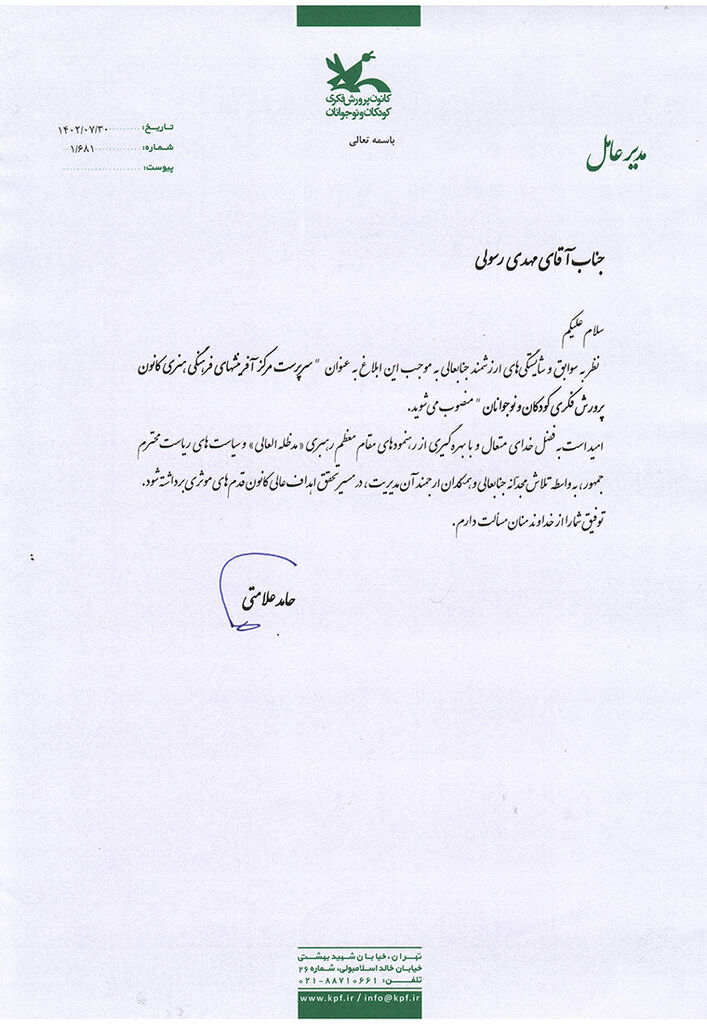 کانون پرورش فکری
کودکان و نوجوانان
باسمه تعالی
مدیر عامل
تاریخ: ۱۴۰۲/۰۷/۳۰
شماره: ۱/۶۸۱
پیوست:
جناب آقای مهدی رسولی
سلام علیکم
نظر به سوابق و شایستگی‌های ارزشمند جنابعالی به موجب این ابلاغ به عنوان " سرپرست مرکز آفرینشهای فرهنگی هنری کانون
پرورش فکری کودکان و نوجوانان " منصوب می‌شوید.
امید است به فضل خدای متعال و با بهره گیری از رهنمودهای مقام معظم رهبری «مدظله العالی» و سیاست‌های ریاست محترم
جمهور، به واسطه تلاش مجدانه جنابعالی و همکاران ارجمند آن مدیریت، در مسیر تحقق اهداف عالی کانون قدم‌های موثری برداشته شود.
توفیق شما را از خداوند منان مسألت دارم.
حامد علامتی
تهران، خیابان شهید بهشتی
خیابان خالد اسلامبولی، شماره ۲۶
تلفن: ۸۸۷۱۰۶۶۱-۰۲۱
www.kpf.ir / info@kpf.ir